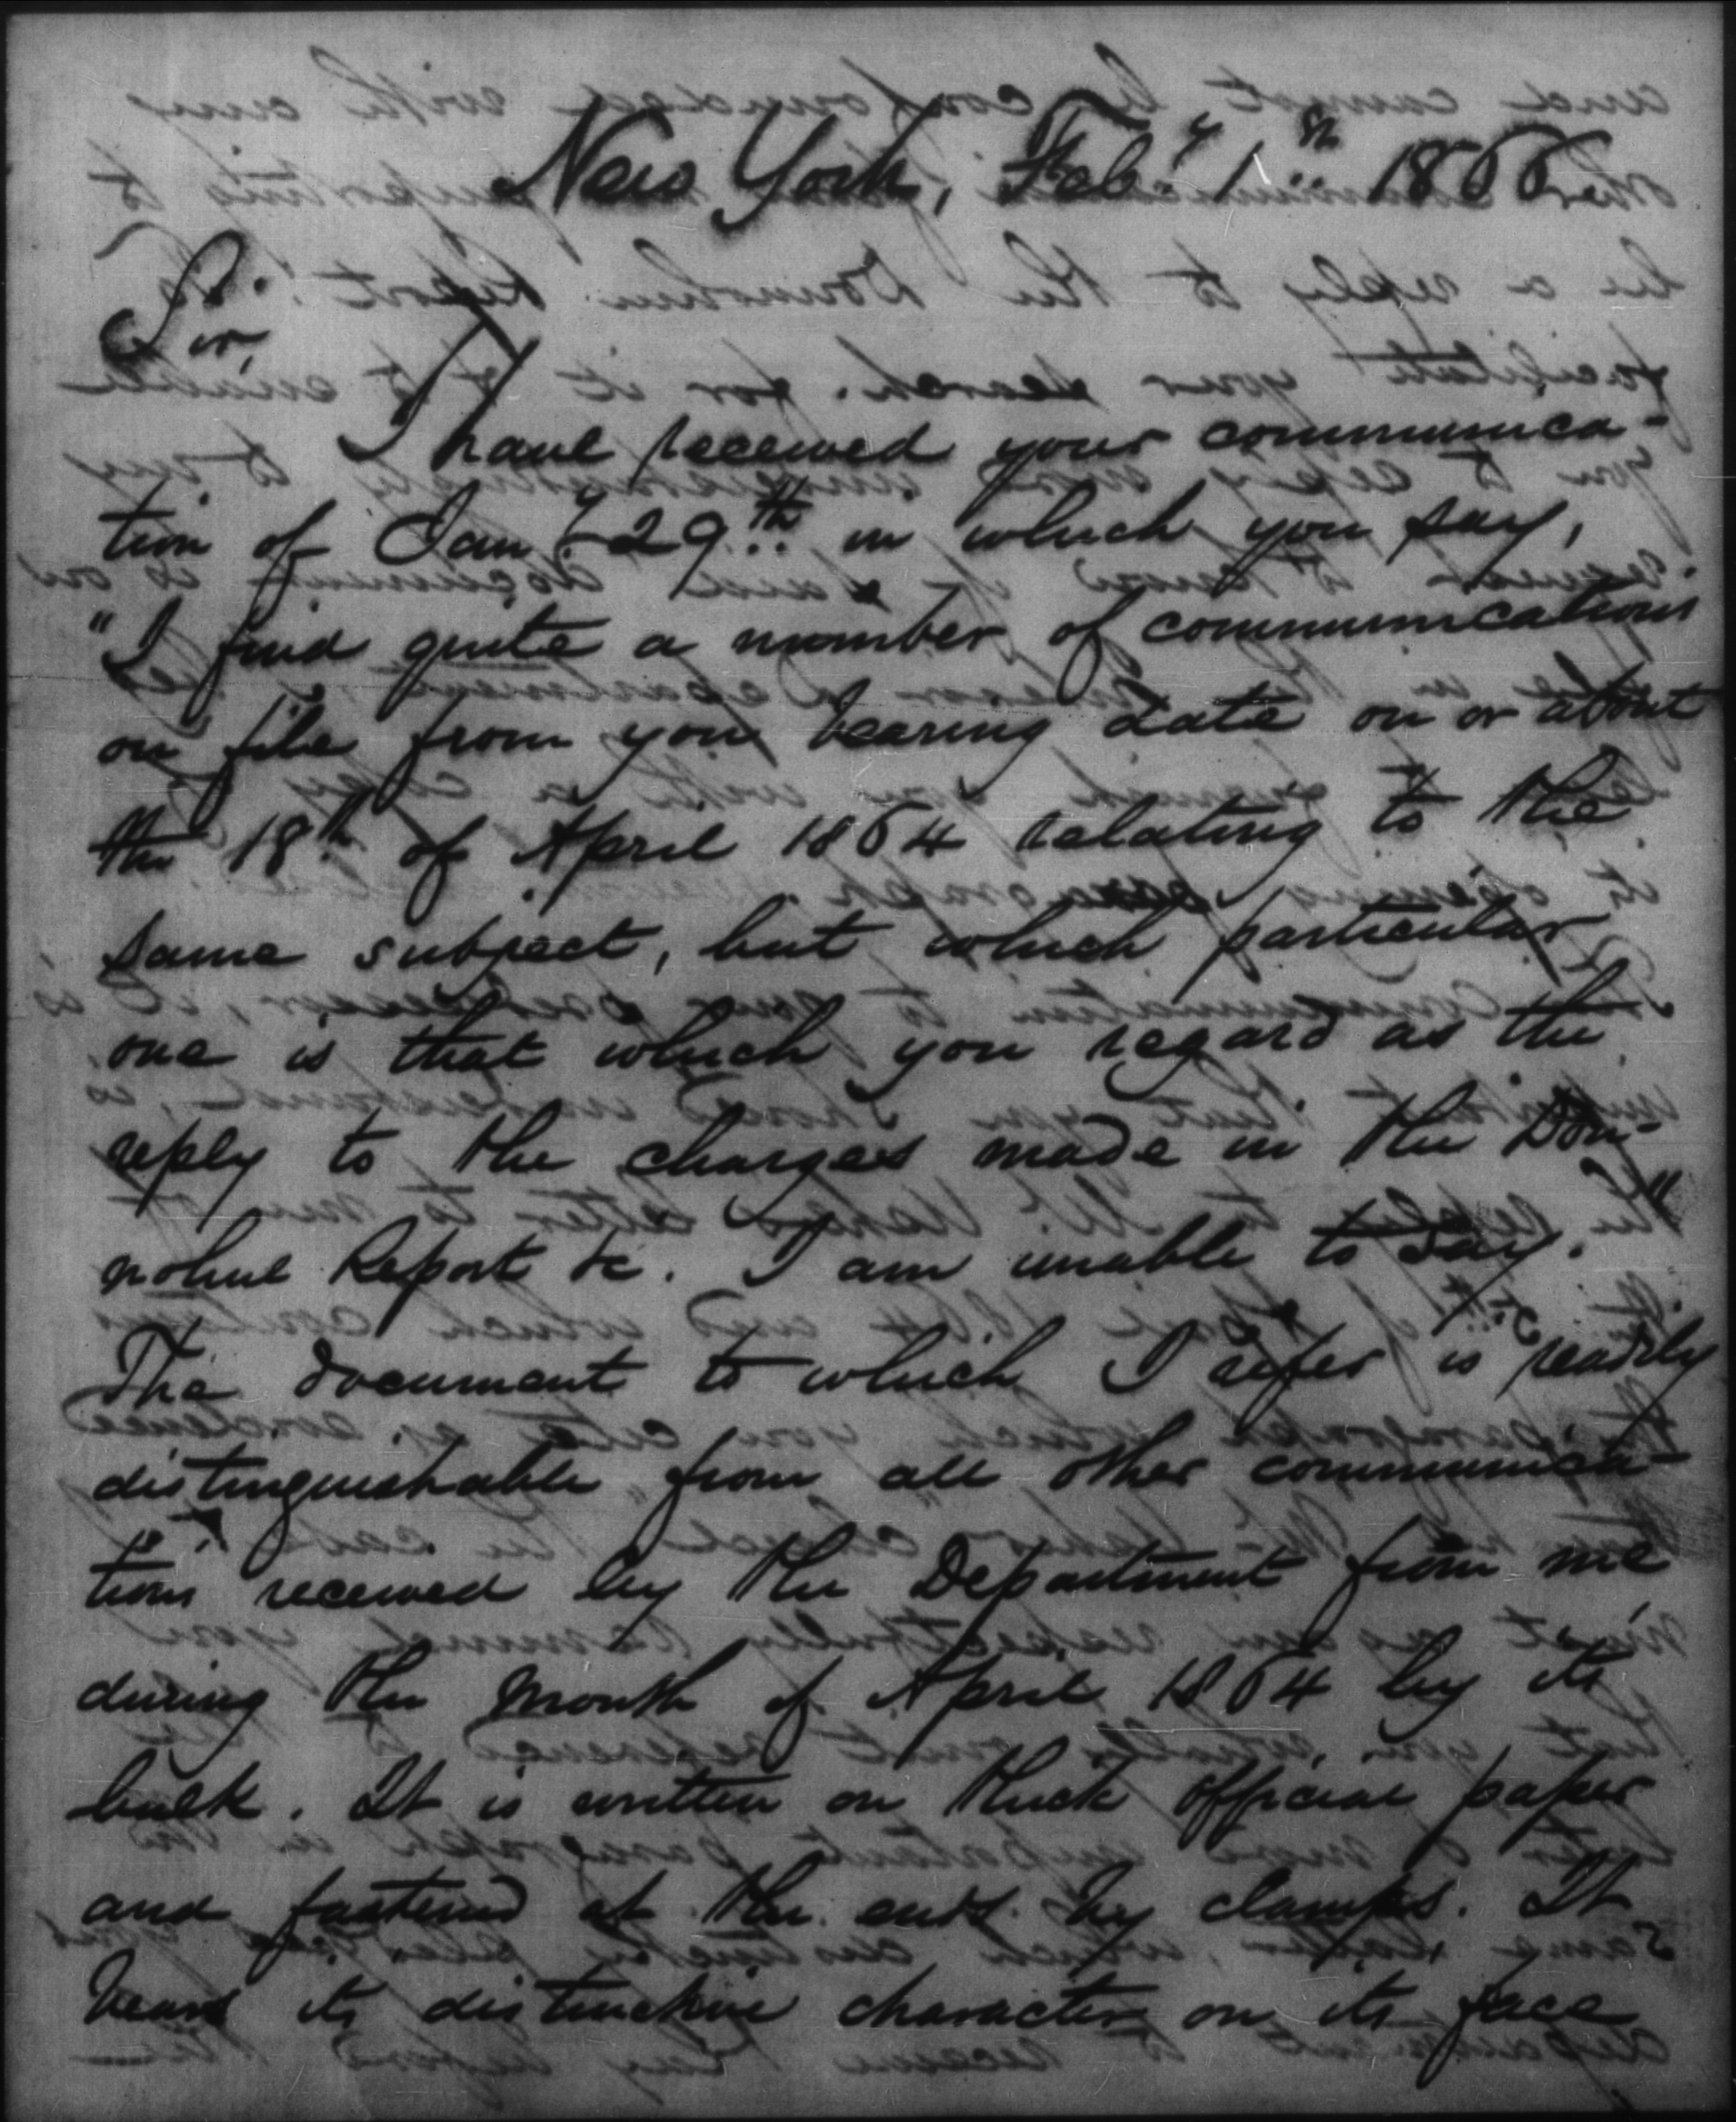 New York, Feby 1st 1866
Sir,
I have received your communica-
tion of Jany 29th in which you say,
"I find quite a number of communications
on file from you bearing date on or about
the 18th of April 1864 relating to the
same subject, but which particular
one is that which you regard as the
reply to the charges made in the Don-
nohue Report &c. I am unable to say."
The document to which I refer is readily
distinguishable from all other communica-
tions received by the Department from me
during the month of April 1864 by its
bulk. It is written on thick official paper
and fastened at the ends by clamps. It
bears its distinctive character on its face